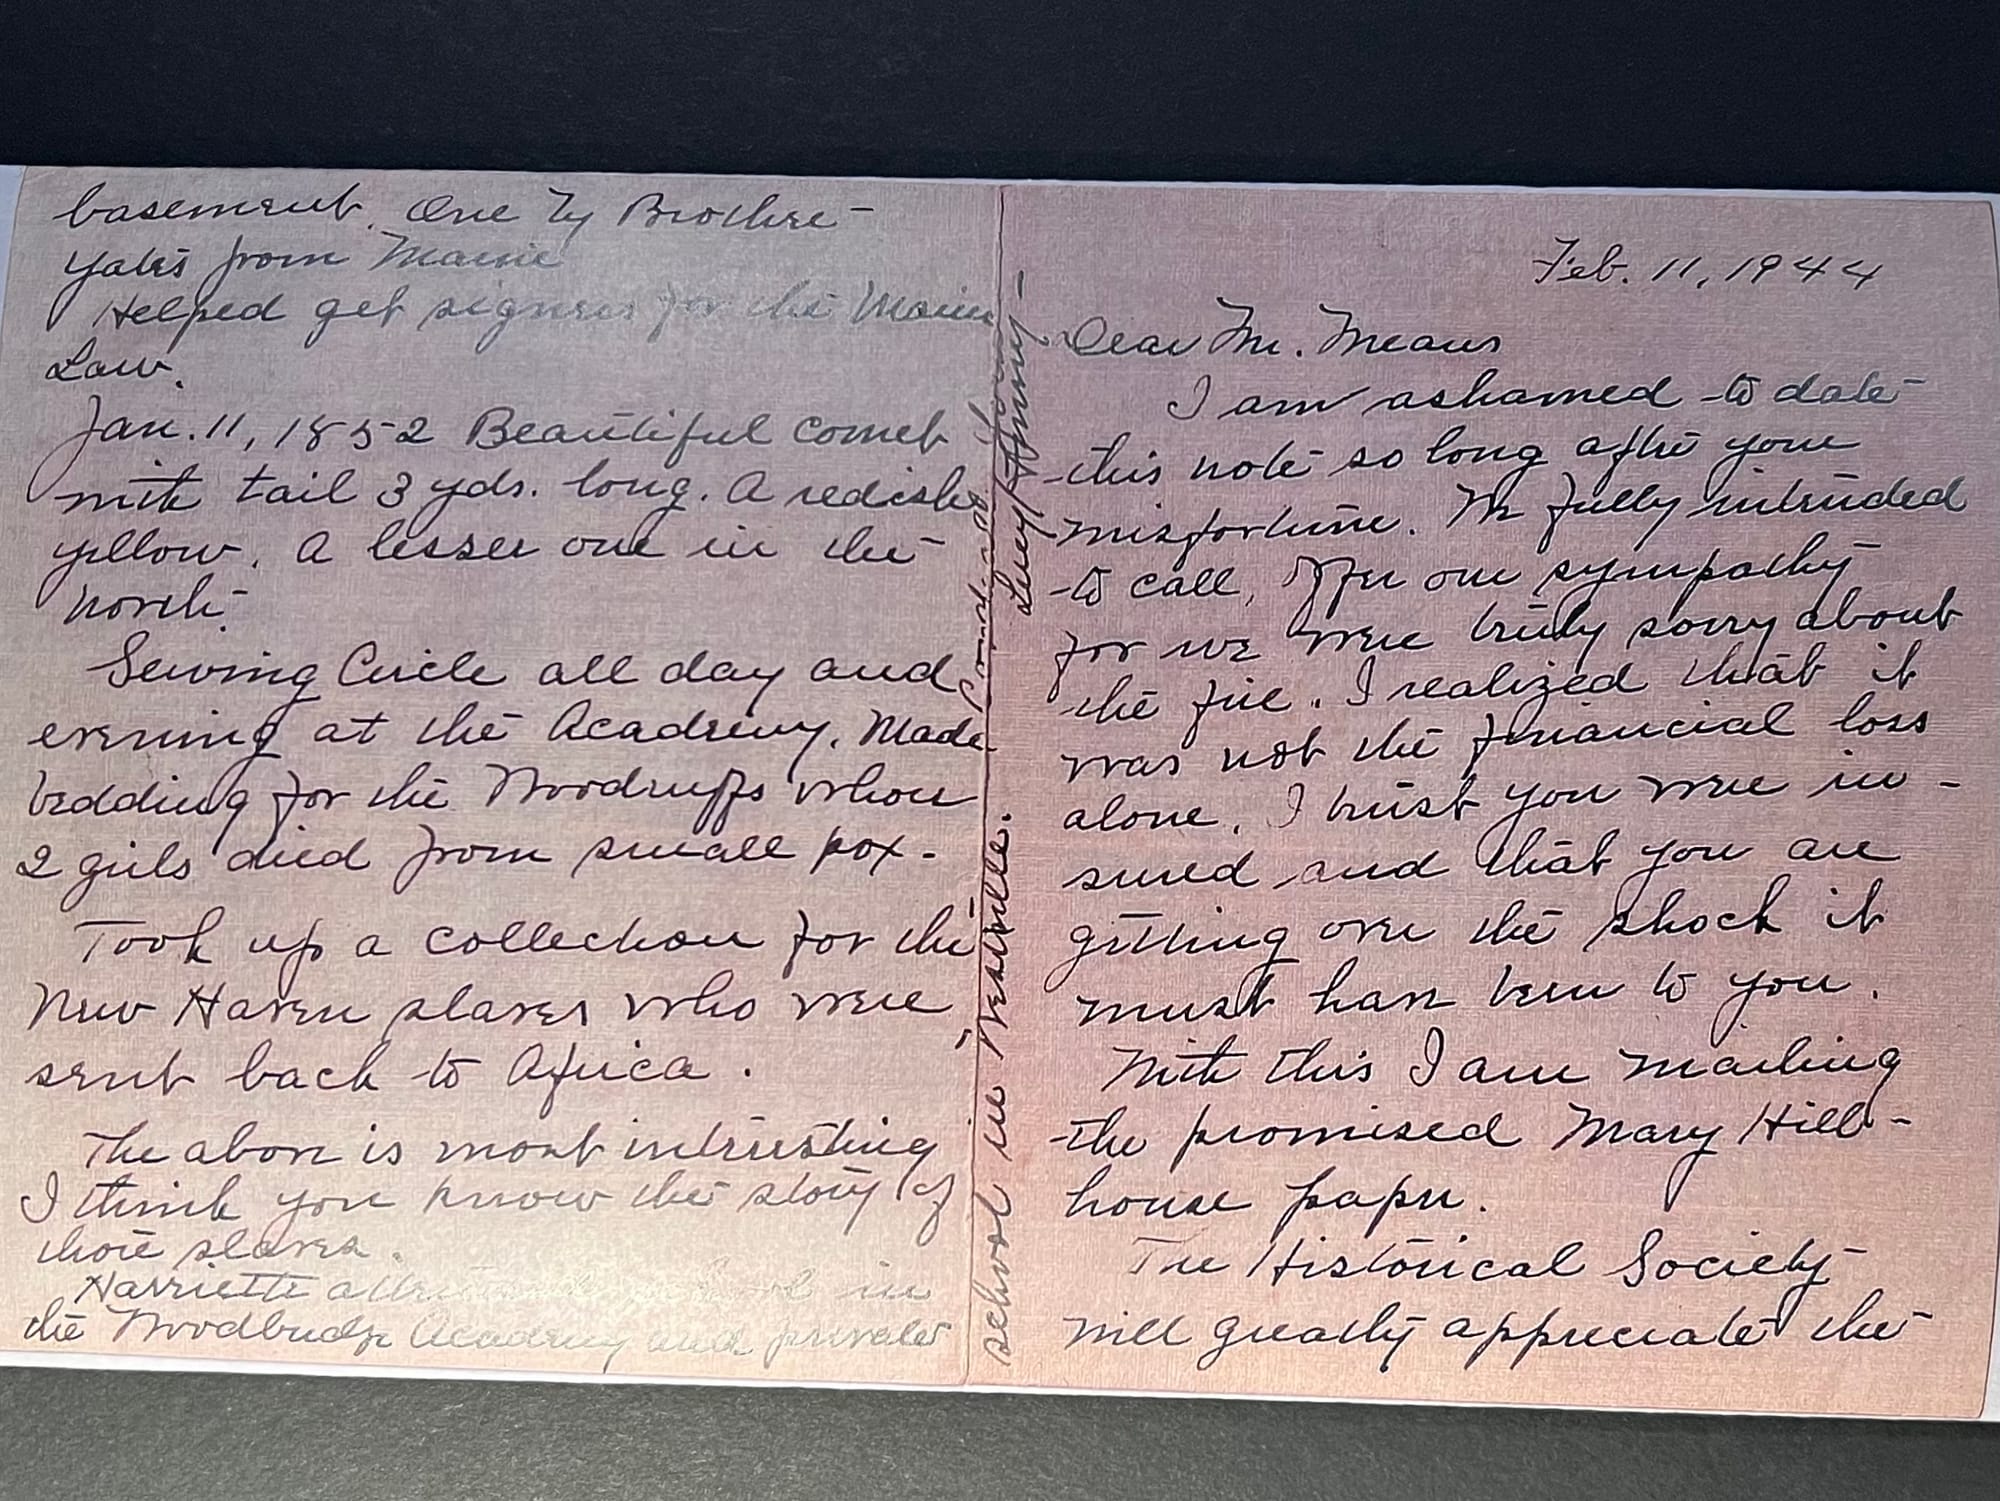 Feb. 11, 1944
Dear Mr. Means
I am ashamed to date
this note so long after your
misfortune. We fully intended
to call, offer our sympathy
for we were truly sorry about
the fire. I realized that it
was not the financial loss
alone. I trust you were in-
sured and that you are
getting over the shock it
must have been to you.
With this I am mailing
the promised Mary Hill-
house paper.
The Historical Society
will greatly appreciate the
basement. One by Brother
Yates from Maine
Helped get signers for the Maine
Law.
Jan. 11, 1852 Beautiful comet
with tail 3 yds. long. A redish
yellow. A lesser one in the
north.
Sewing Circle all day and
evening at the Academy. Made
bedding for the Woodruffs whose
2 girls died from small pox.
Took up a collection for the
New Haven slaves who were
sent back to Africa.
The above is most interesting
I think you know the story of
those slaves.
Harriette attended school in
the Woodbridge Academy and private
school in Westville.
Cordially yours
Lucy